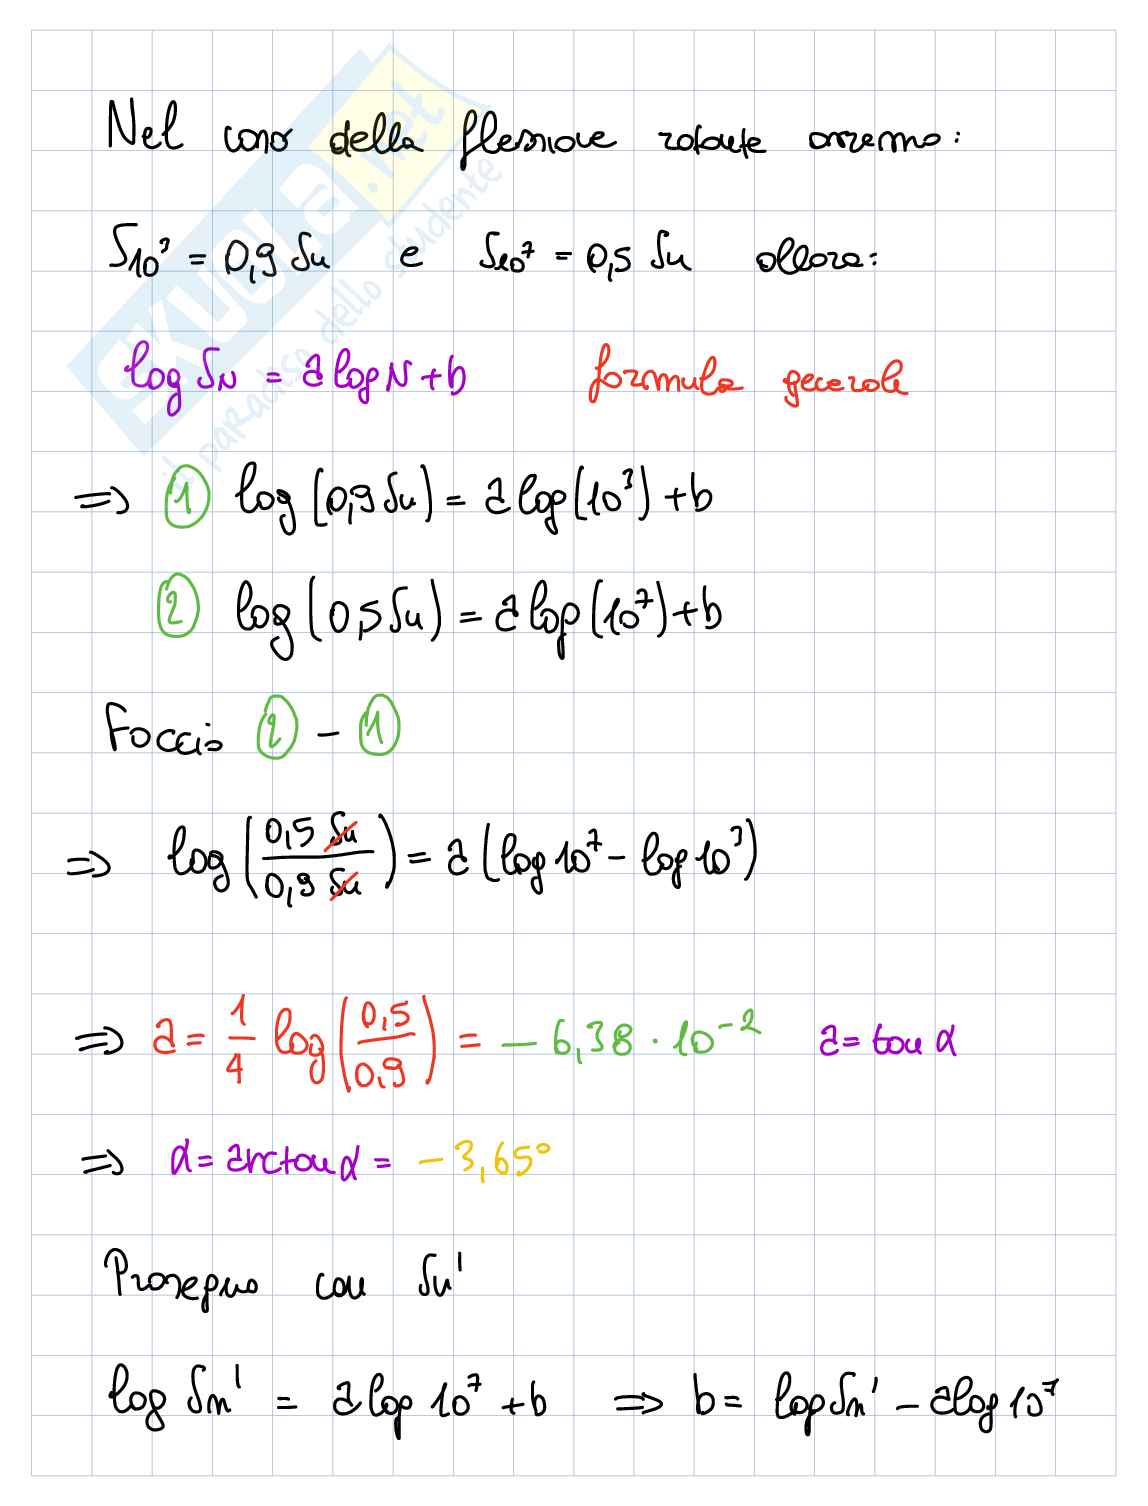 Nel caso della flessione rotante avremo:
S₁₀³ = 0,9 Su e S₁₀⁷ = 0,5 Su allora:
log S_N = a log N + b formula generale
⇒ ① log (0,9 Su) = a log (10³) + b
② log (0,5 Su) = a log (10⁷) + b
Faccio ② - ①
⇒ log (0,5 Su / 0,9 Su) = a (log 10⁷ - log 10³)
⇒ a = 1/4 log (0,5 / 0,9) = - 6,38 · 10⁻² a = tan α
⇒ α = arctan α = - 3,65°
Proseguo con Sn'
log Sn' = a log 10⁷ + b ⇒ b = log Sn' - a log 10⁷
SKUOLA.net
il paradiso dello studente